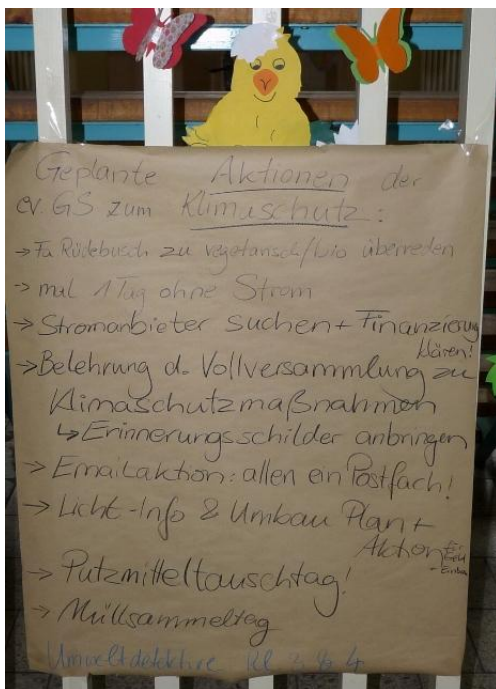 Geplante Aktionen der
ev. GS zum Klimaschutz:
→ Fa Rüdebusch zu vegetarisch/bio überreden
→ mal 1 Tag ohne Strom
→ Stromanbieter suchen + Finanzierung
klären!
→ Belehrung d. Vollversammlung zu
Klimaschutzmaßnahmen
↳ Erinnerungsschilder anbringen
→ Emailaktion: allen ein Postfach!
→ Licht-Info & Umbau Plan +
Aktion für
Geld
→ Putzmitteltauschtag!
→ Müllsammeltag
Umweltdetektive Kl 3 & 4